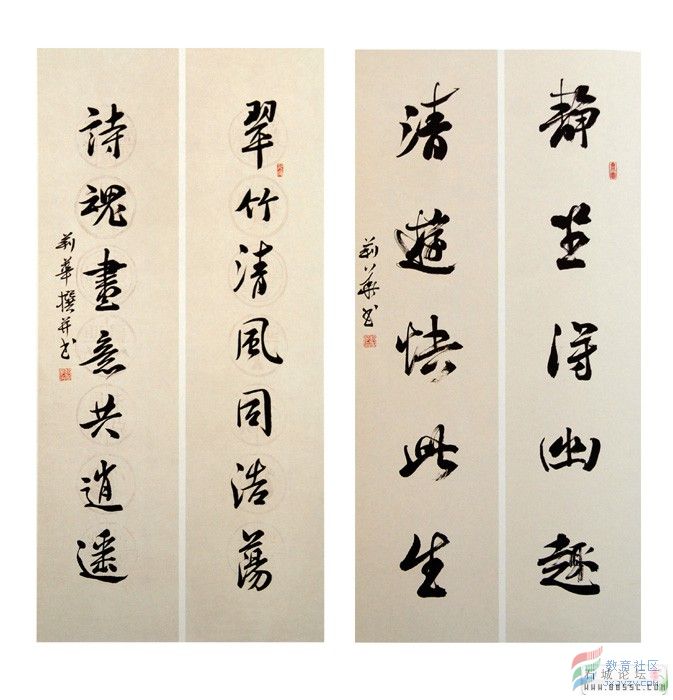 静坐得幽趣
清遊快此生
莉華书
翠竹清風同浩蕩
詩魂畫意共逍遥
莉華撰并书
教育社区
石城论坛